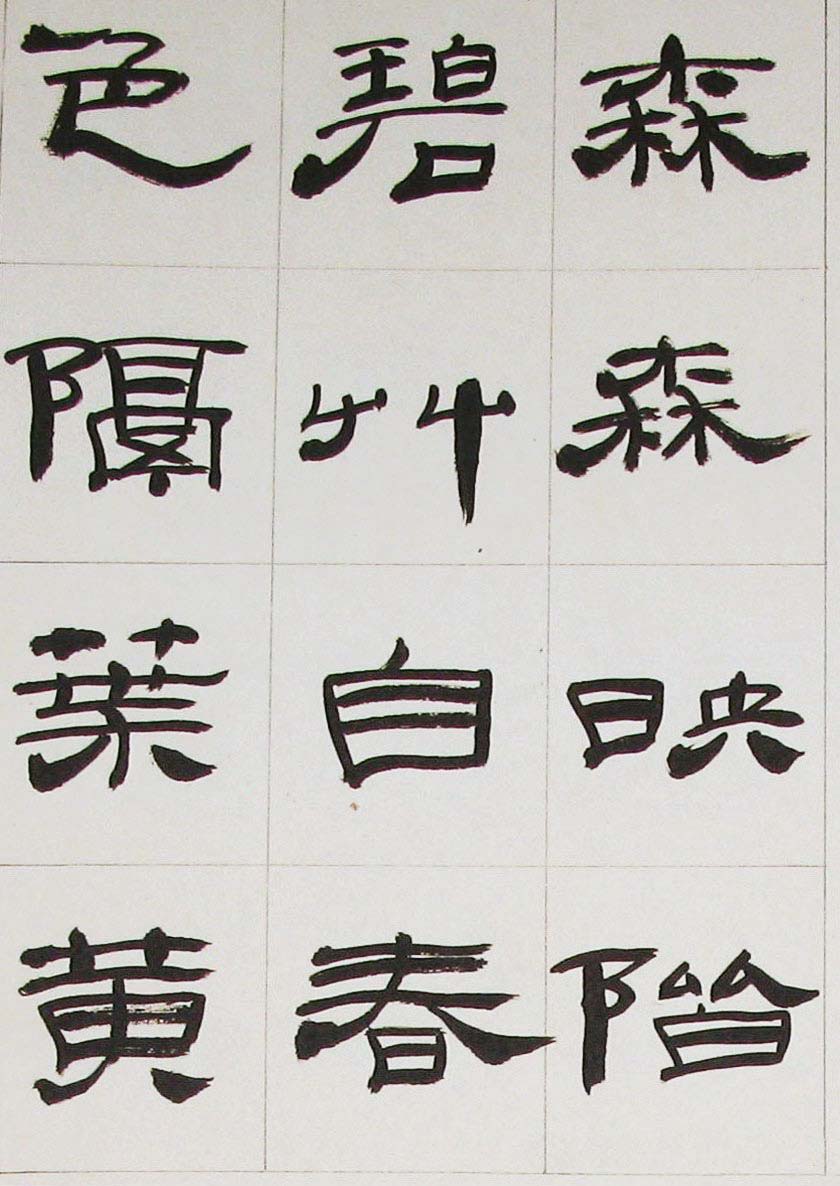 森森映階
碧艸自春
色隔葉黄